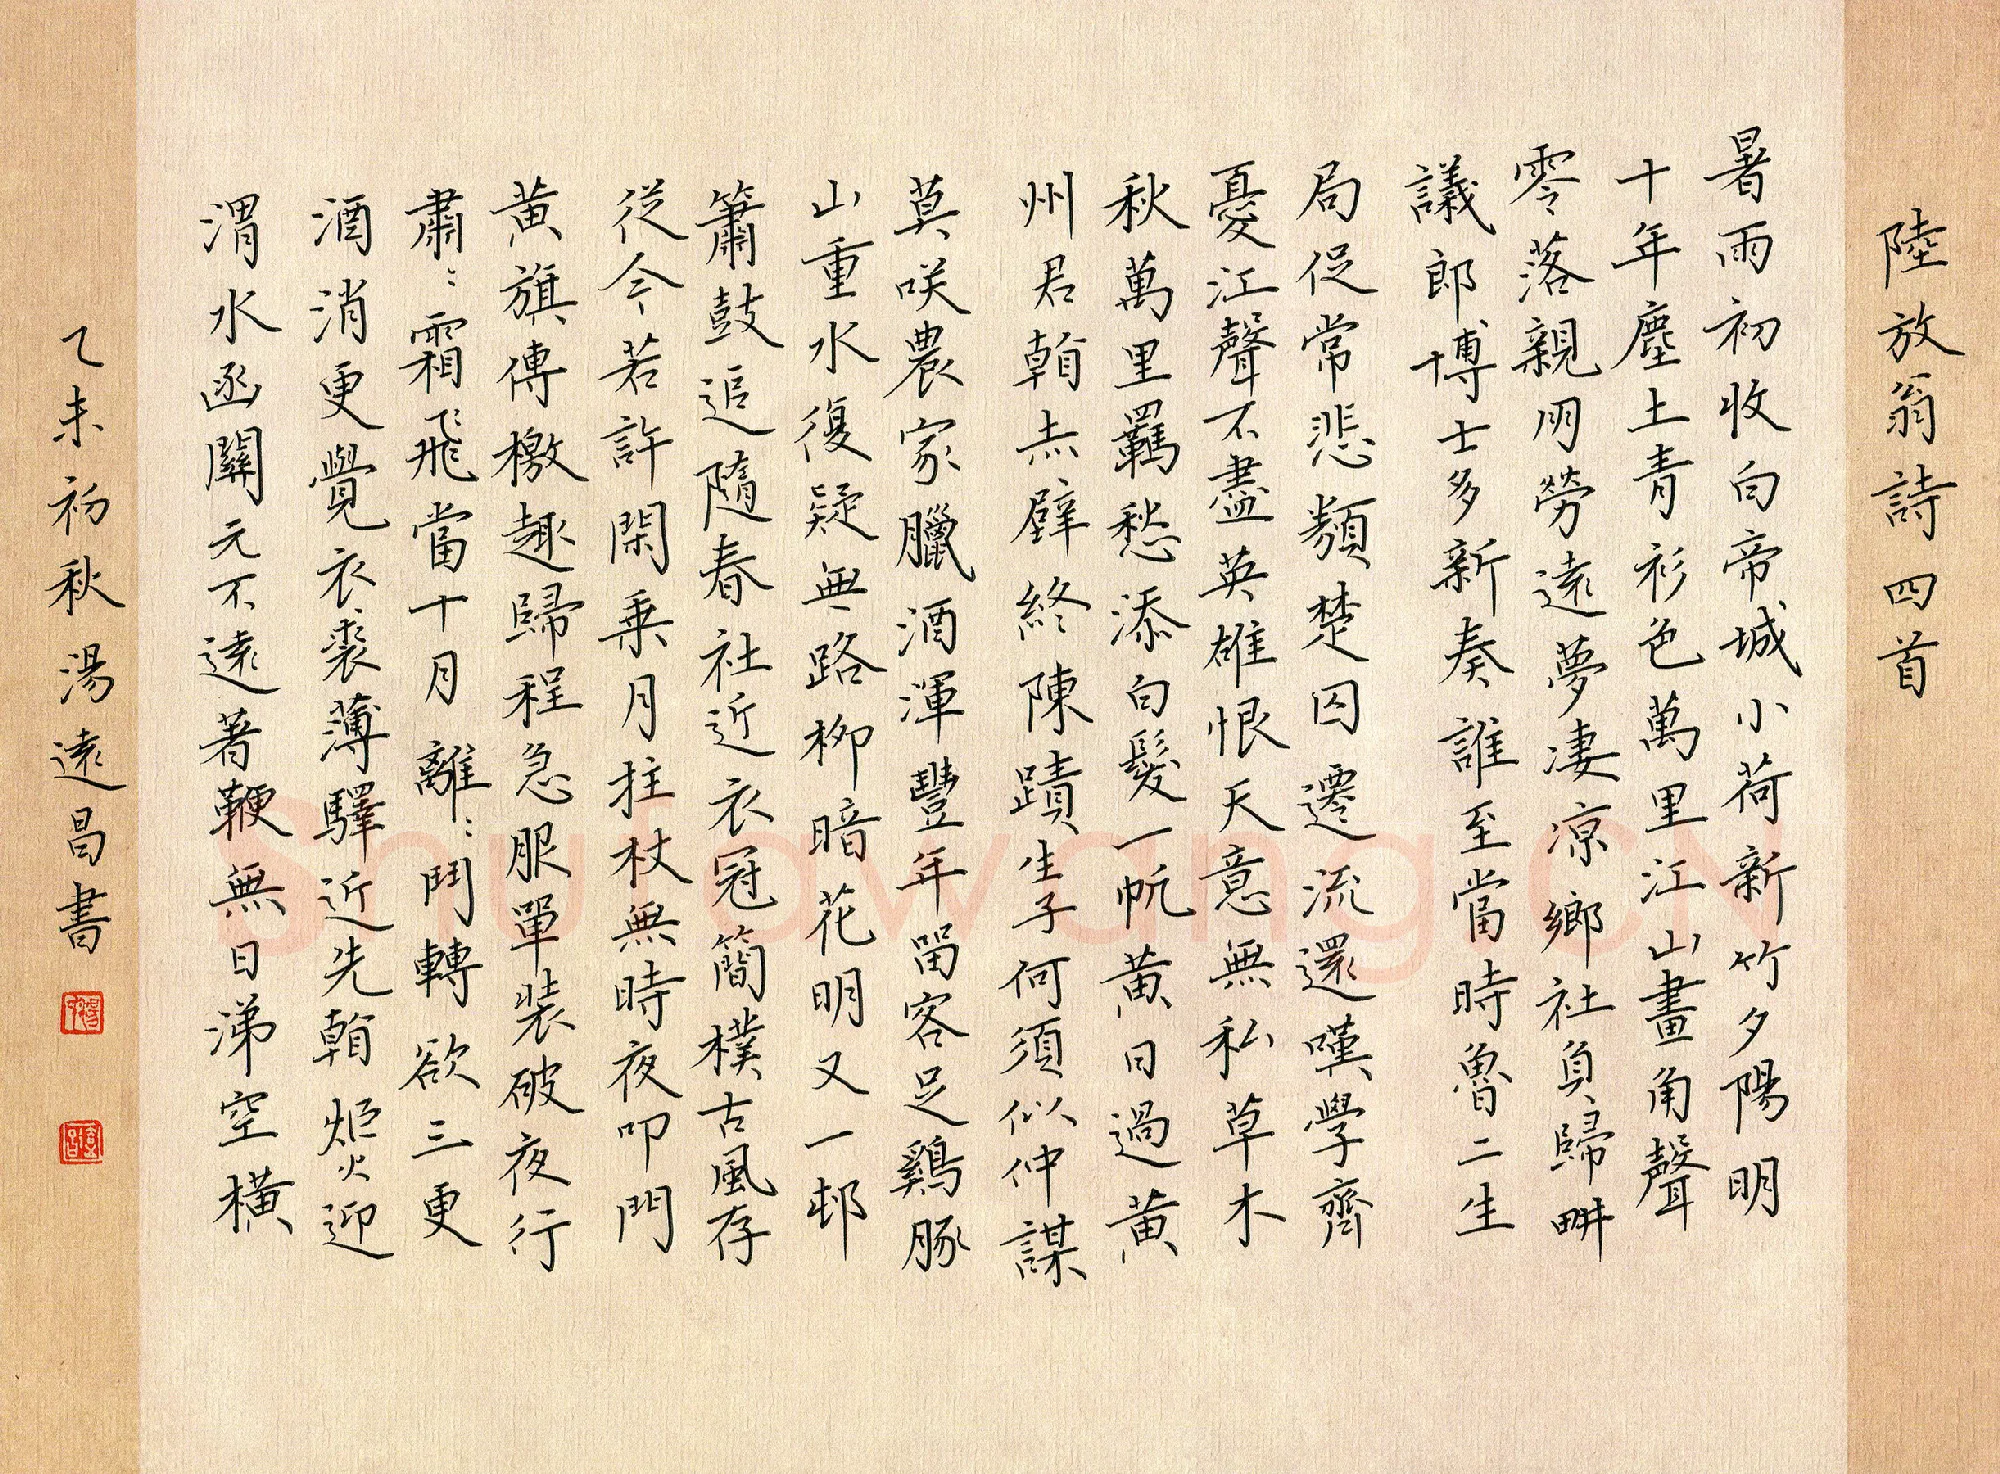 陸放翁詩四首
暑雨初收白帝城小荷新竹夕陽明
十年塵土青衫色萬里江山畫角聲
零落親朋勞遠夢凄涼鄉社負歸畊
議郎博士多新奏誰至當時魯二生
局促常悲類楚囚遷流還嘆學齊
憂江聲不盡英雄恨天意無私草木
秋萬里羈愁添白髮一帆黃日過黃
州君看赤壁終陳蹟生子何須似仲謀
莫咲農家臘酒渾豐年留客足鷄豚
山重水復疑無路柳暗花明又一邨
簫鼓追隨春社近衣冠簡樸古風存
從今若許閑乗月拄杖無時夜叩門
黃旗傳檄趣歸程急服單裝破夜行
肅〻霜飛當十月離〻鬥轉欲三更
酒消更覺衣裘薄驛近先看炬火迎
渭水函關元不遠著鞭無日涕空橫
乙未初秋湯遠昌書
Shufawang.CN